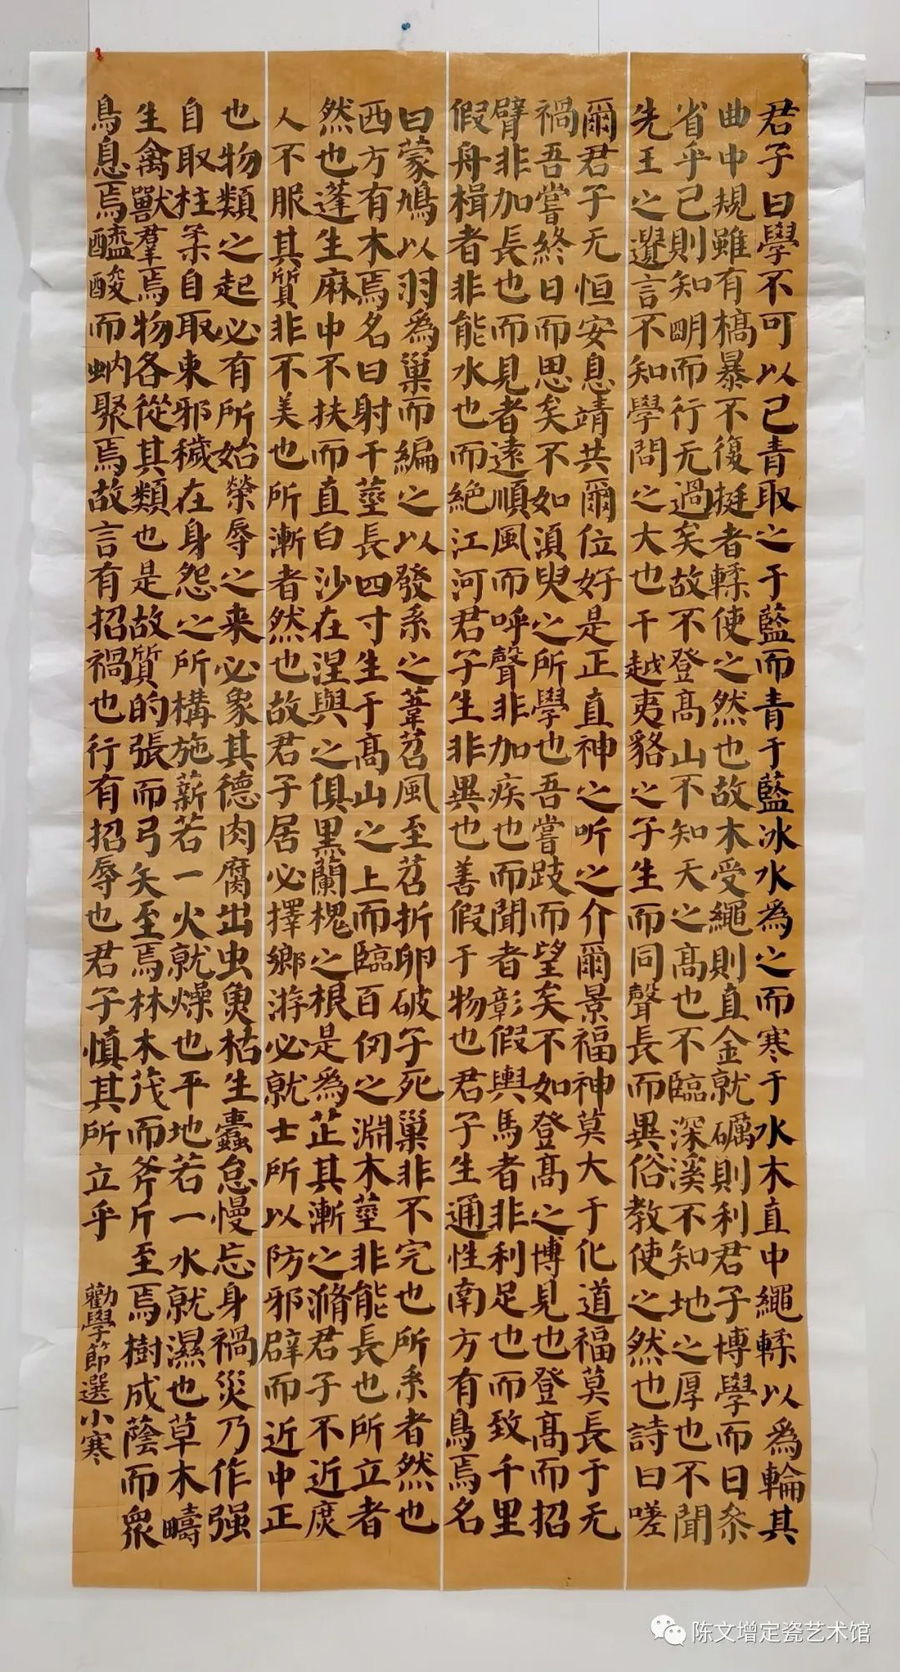 君子曰學不可以已青取之于藍而青于藍冰水為之而寒于水木直中繩輮以為輪其
曲中規雖有槁暴不復挺者輮使之然也故木受繩則直金就礪則利君子博學而日參
省乎己則知明而行无過矣故不登高山不知天之高也不臨深溪不知地之厚也不聞
先王之遺言不知學問之大也干越夷貉之子生而同聲長而異俗教使之然也詩曰嗟
爾君子无恒安息靖共爾位好是正直神之听之介爾景福神莫大于化道福莫長于无
禍吾嘗終日而思矣不如須臾之所學也吾嘗跂而望矣不如登高之博見也登高而招
臂非加長也而見者遠順風而呼聲非加疾也而聞者彰假輿馬者非利足也而致千里
假舟楫者非能水也而絕江河君子生非異也善假于物也君子生通性南方有鳥焉名
曰蒙鳩以羽為巢而編之以發系之葦苕風至苕折卵破子死巢非不完也所系者然也
西方有木焉名曰射干莖長四寸生于高山之上而臨百仞之淵木莖非能長也所立者
然也蓬生麻中不扶而直白沙在涅與之俱黑蘭槐之根是為芷其漸之滫君子不近庶
人不服其質非不美也所漸者然也故君子居必擇鄉游必就士所以防邪辟而近中正
也物類之起必有所始榮辱之来必象其德肉腐出虫魚枯生蠹怠慢忘身禍災乃作强
自取柱柔自取束邪穢在身怨之所構施薪若一火就燥也平地若一水就濕也草木疇
生禽獸羣焉物各從其類也是故質的張而弓矢至焉林木茂而斧斤至焉樹成蔭而眾
鳥息焉醯酸而蚋聚焉故言有招禍也行有招辱也君子慎其所立乎
勸學節選小寒
陈文增定瓷艺术馆